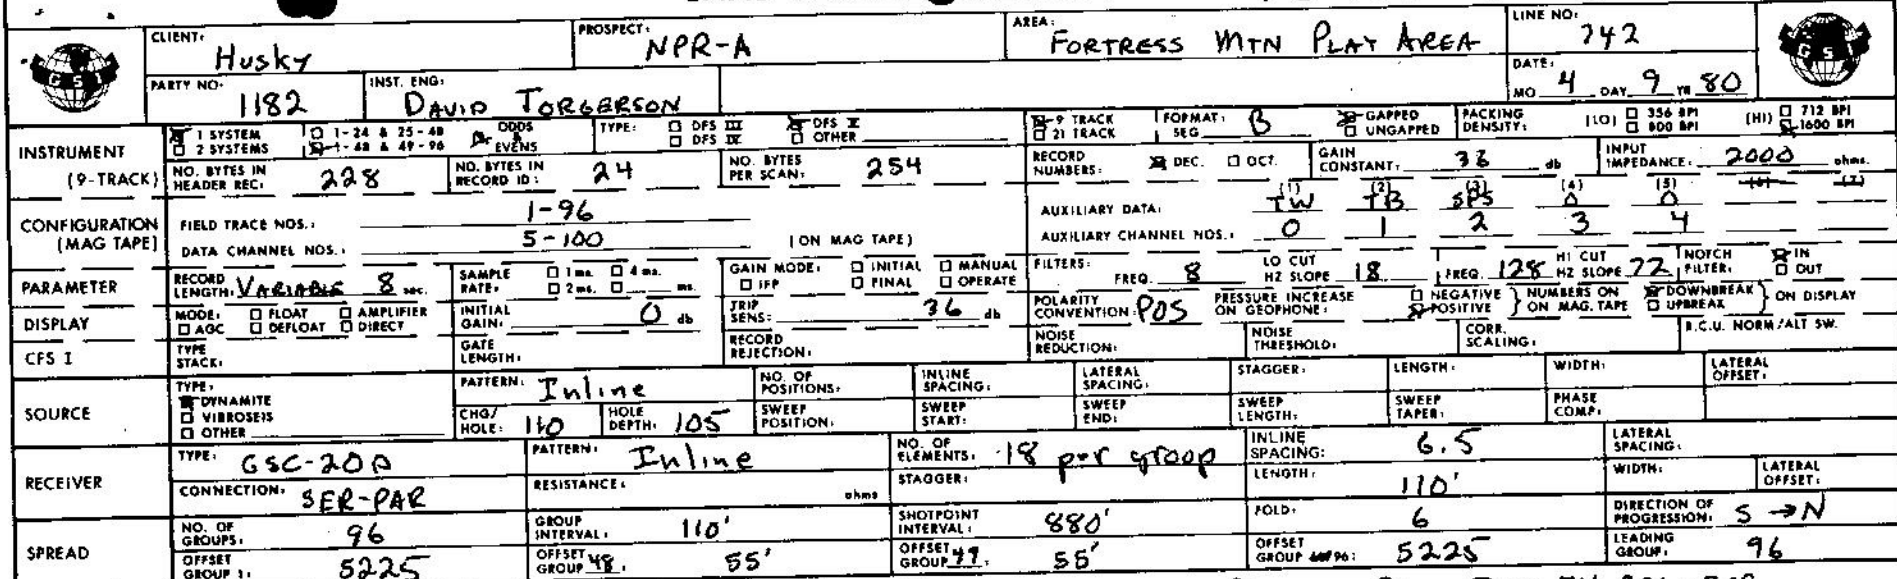 CLIENT: Husky PROSPECT: NPR-A AREA: FORTRESS MTN PLAY AREA LINE NO: 742
GSI PARTY NO: 1182 INST. ENG: DAVID TORGERSON DATE: MO 4 DAY 9 YR 80 GSI
INSTRUMENT (9-TRACK) 1 SYSTEM 1-24 & 25-48 ODDS & EVENS TYPE: DFS III DFS V 9 TRACK FORMAT: B GAPPED PACKING DENSITY: (LO) 356 BPI (HI) 712 BPI
2 SYSTEMS 1-48 & 49-96 DFS IV OTHER 21 TRACK SEG UNGAPPED 800 BPI 1600 BPI
NO. BYTES IN HEADER REC: 228 NO. BYTES IN RECORD ID: 24 NO. BYTES PER SCAN: 254 RECORD NUMBERS: DEC. OCT. GAIN CONSTANT: 36 db INPUT IMPEDANCE: 2000 ohms.
CONFIGURATION (MAG TAPE) FIELD TRACE NOS.: 1-96 AUXILIARY DATA: (1) TW (2) TB (3) SPS (4) 0 (5) 0 (6) (7)
DATA CHANNEL NOS.: 5-100 (ON MAG TAPE) AUXILIARY CHANNEL NOS.: 0 1 2 3 4
PARAMETER RECORD LENGTH: VARIABLE 8 sec. SAMPLE RATE: 1 ms. 4 ms. 2 ms. ms. GAIN MODE: INITIAL MANUAL IFP FINAL OPERATE FILTERS: FREQ. 8 LO CUT HZ SLOPE 18 FREQ. 128 HI CUT HZ SLOPE 72 NOTCH FILTER: IN OUT
DISPLAY MODE: FLOAT AMPLIFIER AGC DEFLOAT DIRECT INITIAL GAIN: 0 db TRIP SENS: 36 db POLARITY CONVENTION: POS PRESSURE INCREASE ON GEOPHONE: NEGATIVE POSITIVE NUMBERS ON ON MAG. TAPE DOWNBREAK UPBREAK ON DISPLAY
CFS I TYPE STACK: GATE LENGTH: RECORD REJECTION: NOISE REDUCTION: NOISE THRESHOLD: CORR. SCALING: R.C.U. NORM/ALT SW.
SOURCE TYPE: DYNAMITE VIBROSEIS OTHER PATTERN: Inline NO. OF POSITIONS: INLINE SPACING: LATERAL SPACING: STAGGER: LENGTH: WIDTH: LATERAL OFFSET:
CHG/HOLE: 110 HOLE DEPTH: 105 SWEEP POSITION: SWEEP START: SWEEP END: SWEEP LENGTH: SWEEP TAPER: PHASE COMP:
RECEIVER TYPE: GSC-20D PATTERN: Inline NO. OF ELEMENTS: 18 per group INLINE SPACING: 6.5 LATERAL SPACING:
CONNECTION: SER-PAR RESISTANCE: ohms STAGGER: LENGTH: 110' WIDTH: LATERAL OFFSET:
SPREAD NO. OF GROUPS: 96 GROUP INTERVAL: 110' SHOTPOINT INTERVAL: 880' FOLD: 6 DIRECTION OF PROGRESSION: S → N
OFFSET GROUP 1: 5225 OFFSET GROUP 48: 55' OFFSET GROUP 49: 55' OFFSET GROUP 96: 5225 LEADING GROUP: 96